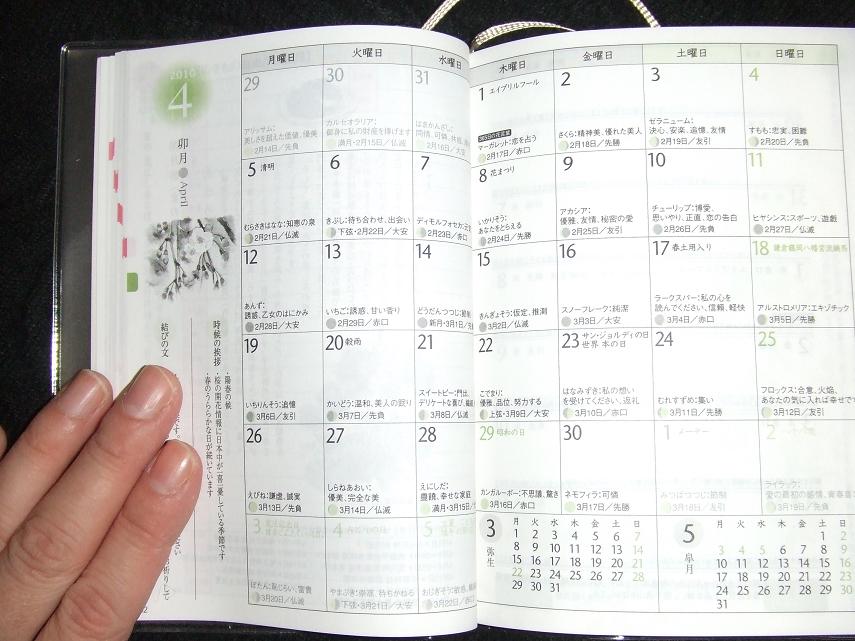 2010
4
卯月
April
時候の挨拶
・陽春の候
・桜の開花情報に日本中が一喜一憂している季節です
・春のうららかな日が続いています
結びの文
月曜日 火曜日 水曜 木曜日 金曜日 土曜日 日曜日
29
アリッサム:
美しさを超えた価値、優美
2月14日/先負
30
カルセオラリア:
御身に私の財産を捧げます
満月・2月15日/仏滅
31
はまかんざし:
同情、可憐、
2月16日/大安
1 エイプリルフール
マーガレット:恋を占う
2月17日/赤口
2
さくら:精神美、優れた美人
2月18日/先勝
3
ゼラニューム:
決心、安楽、追憶、友情
2月19日/友引
4
すもも:忠実、困難
2月20日/先負
5 清明
むらさきはなな:知恵の泉
2月21日/仏滅
6
きぶし:待ち合わせ、出会い
下弦・2月22日/大安
7
ディモルフォセカ:
2月23日/赤口
8 花まつり
いかりそう:
あなたをとらえる
2月24日/先勝
9
アカシア:
優雅、友情、秘密の愛
2月25日/友引
10
チューリップ:博愛、
思いやり、正直、恋の告白
2月26日/先負
11
ヒヤシンス:スポーツ、遊戯
2月27日/大安
12
あんず:
誘惑、乙女のはにかみ
2月28日/大安
13
いちご:誘惑、甘い香り
2月29日/赤口
14
どうだんつつじ:節制
新月・3月1日/先
15
きんぎょそう:仮定、推測
3月2日/仏滅
16
スノーフレーク:純潔
3月3日/大安
17 春土用入り
ラークスパー:私の心を
読んでください、信頼、軽快
3月4日/赤口
18 鎌倉鶴岡八幡宮流鏑馬
アルストロメリア:エキゾチック
3月5日/先勝
19
いちりんそう:追憶
3月6日/友引
20 穀雨
かいどう:温和、美人の眠り
3月7日/先負
21
スイートピー:門出、
デリケートな喜び、
3月8日/仏滅
22
こでまり:
優雅、品位、努力する
上弦・3月9日/大安
23 サン・ジョルディの日
世界 本の日
はなみずき:私の想い
を受けてください、返礼
3月10日/赤口
24
むれすずめ:集い
3月11日/先勝
25
フロックス:合意、火焔、
あなたの気に入れば幸せで
3月12日/友引
26
えびね:謙虚、誠実
3月13日/先負
27
しらねあおい:
優美、完全な美
3月14日/仏滅
28
えにしだ:
豊饒、幸せな家庭
満月・3月15日/
29 昭和の日
カンガルーポー:不思議、驚き
3月16日/赤口
30
ネモフィラ:可憐
3月17日/先勝
1 メーデー
みつばつつじ:節制
3月18日/友引
2
ライラック:
愛の最初の感情、青春
3月19日/先負
3
ぼたん:恥じらい、富貴
3月20日/仏滅
4
やまぶき:崇高、待ちかねる
下弦・3月21日/大安
5
おじぎそう:敏感、
3月22日/赤口
3
弥生
月 火 水 木 金 土 日
1 2 3 4 5 6 7
8 9 10 11 12 13 14
15 16 17 18 19 20 21
22 23 24 25 26 27 28
29 30 31
5
皐月
月 火 水 木 金 土 日
1 2
3 4 5 6 7 8 9
10 11 12 13 14 15 16
17 18 19 20 21 22 23
24 25 26 27 28 29 30
31